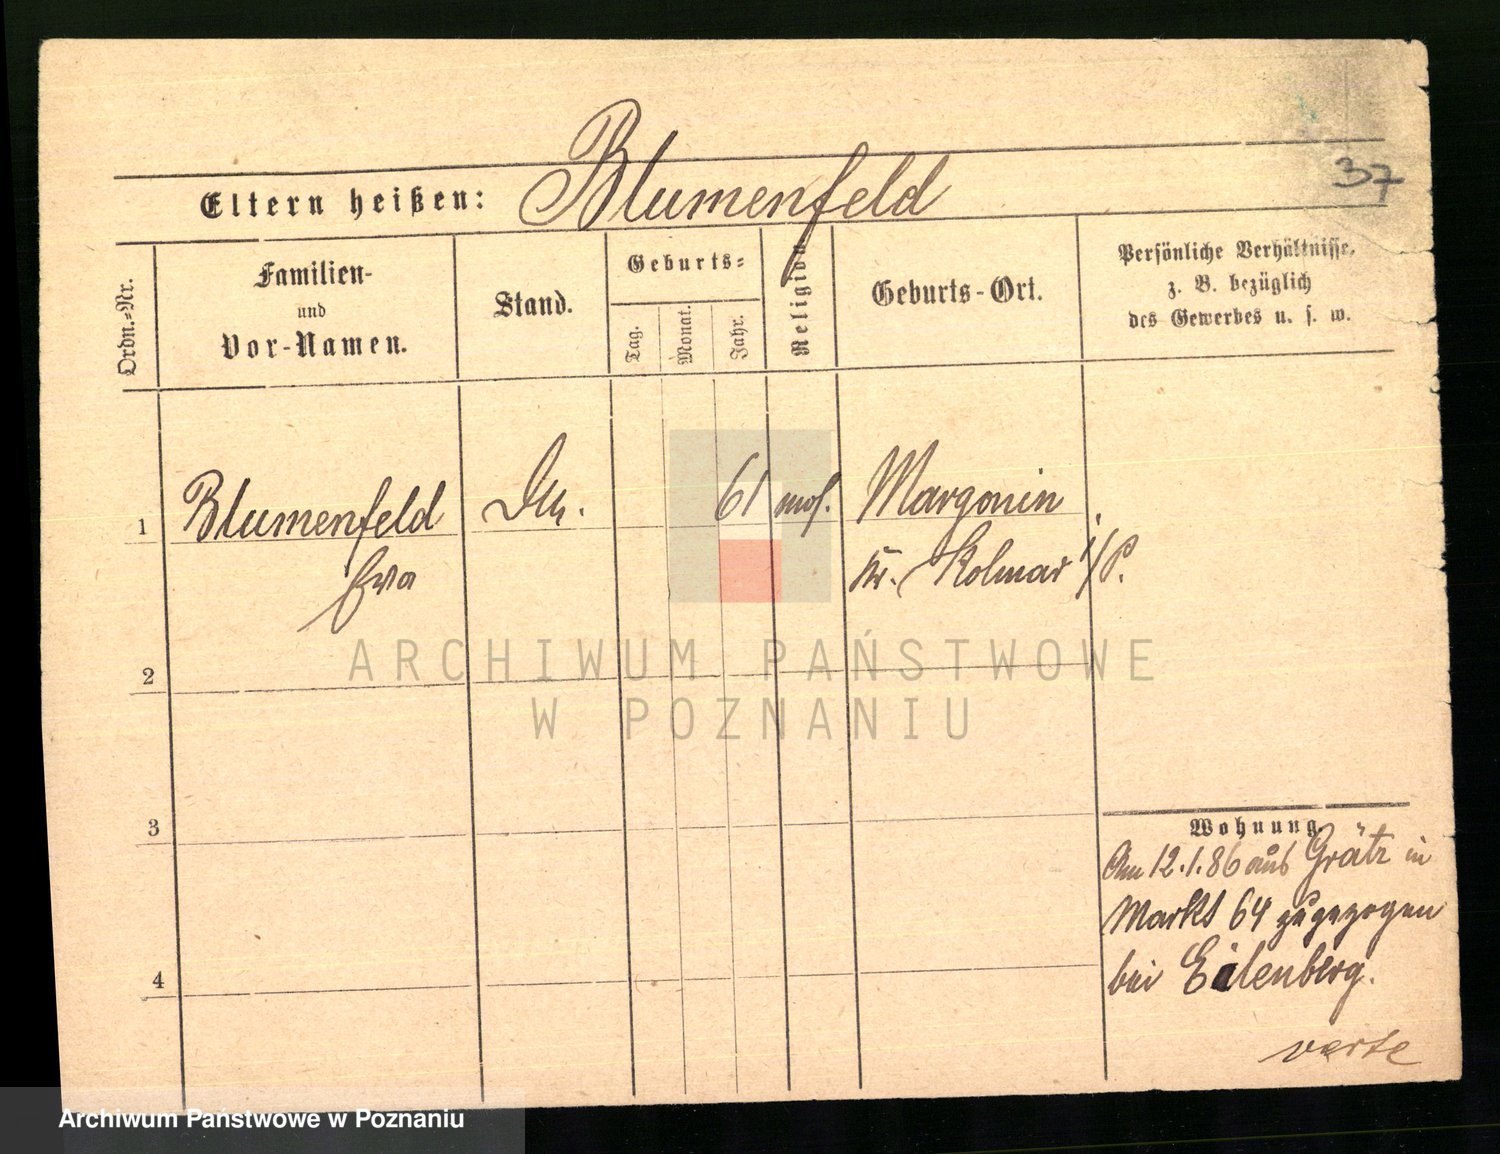 37
Eltern heißen: Blumenfeld
Ordn.-Nr.
Familien-
und
Vor-Namen.
Stand.
Geburts-
Tag.
Monat.
Jahr.
Religion
Geburts-Ort.
Persönliche Verhältnisse,
z. B. bezüglich
des Gewerbes u. s. w.
1 Blumenfeld 61 mos. Margonin
Eva Kr. Kolmar i/P.
2
3
4
Wohnung.
Am 12.1.86 aus Grätz in
Markt 64 zugezogen
bei Eilenberg.
verte
ARCHIWUM PAŃSTWOWE
W POZNANIU
Archiwum Państwowe w Poznaniu